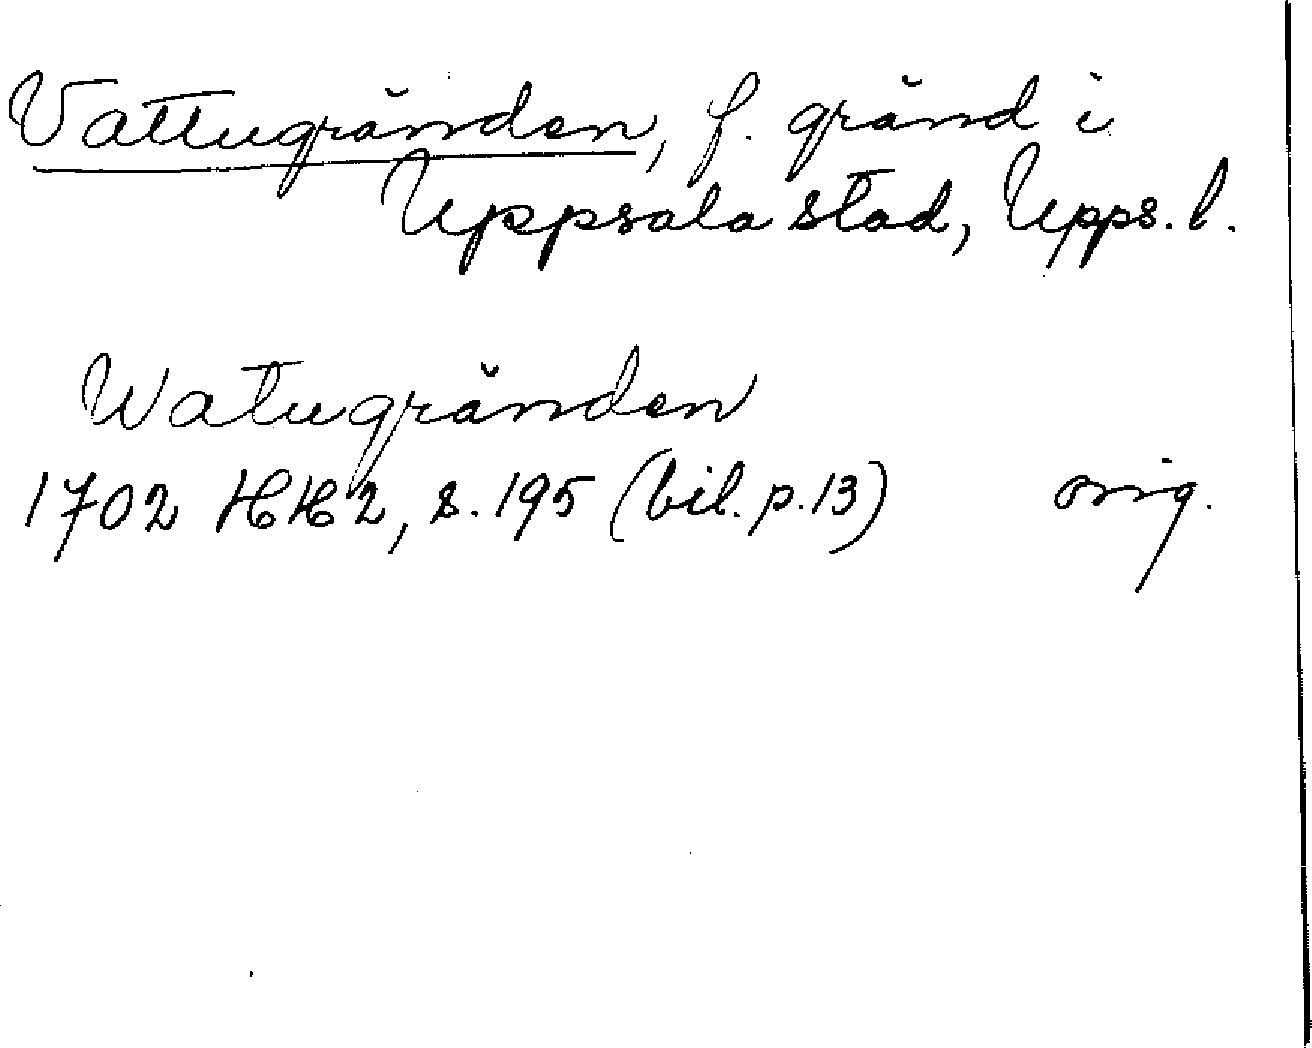 Vattugränden, f. gränd i
Uppsala stad, Upps. l.
Watugränden
1702 HH 2, s. 195 (bil. p. 13) orig.